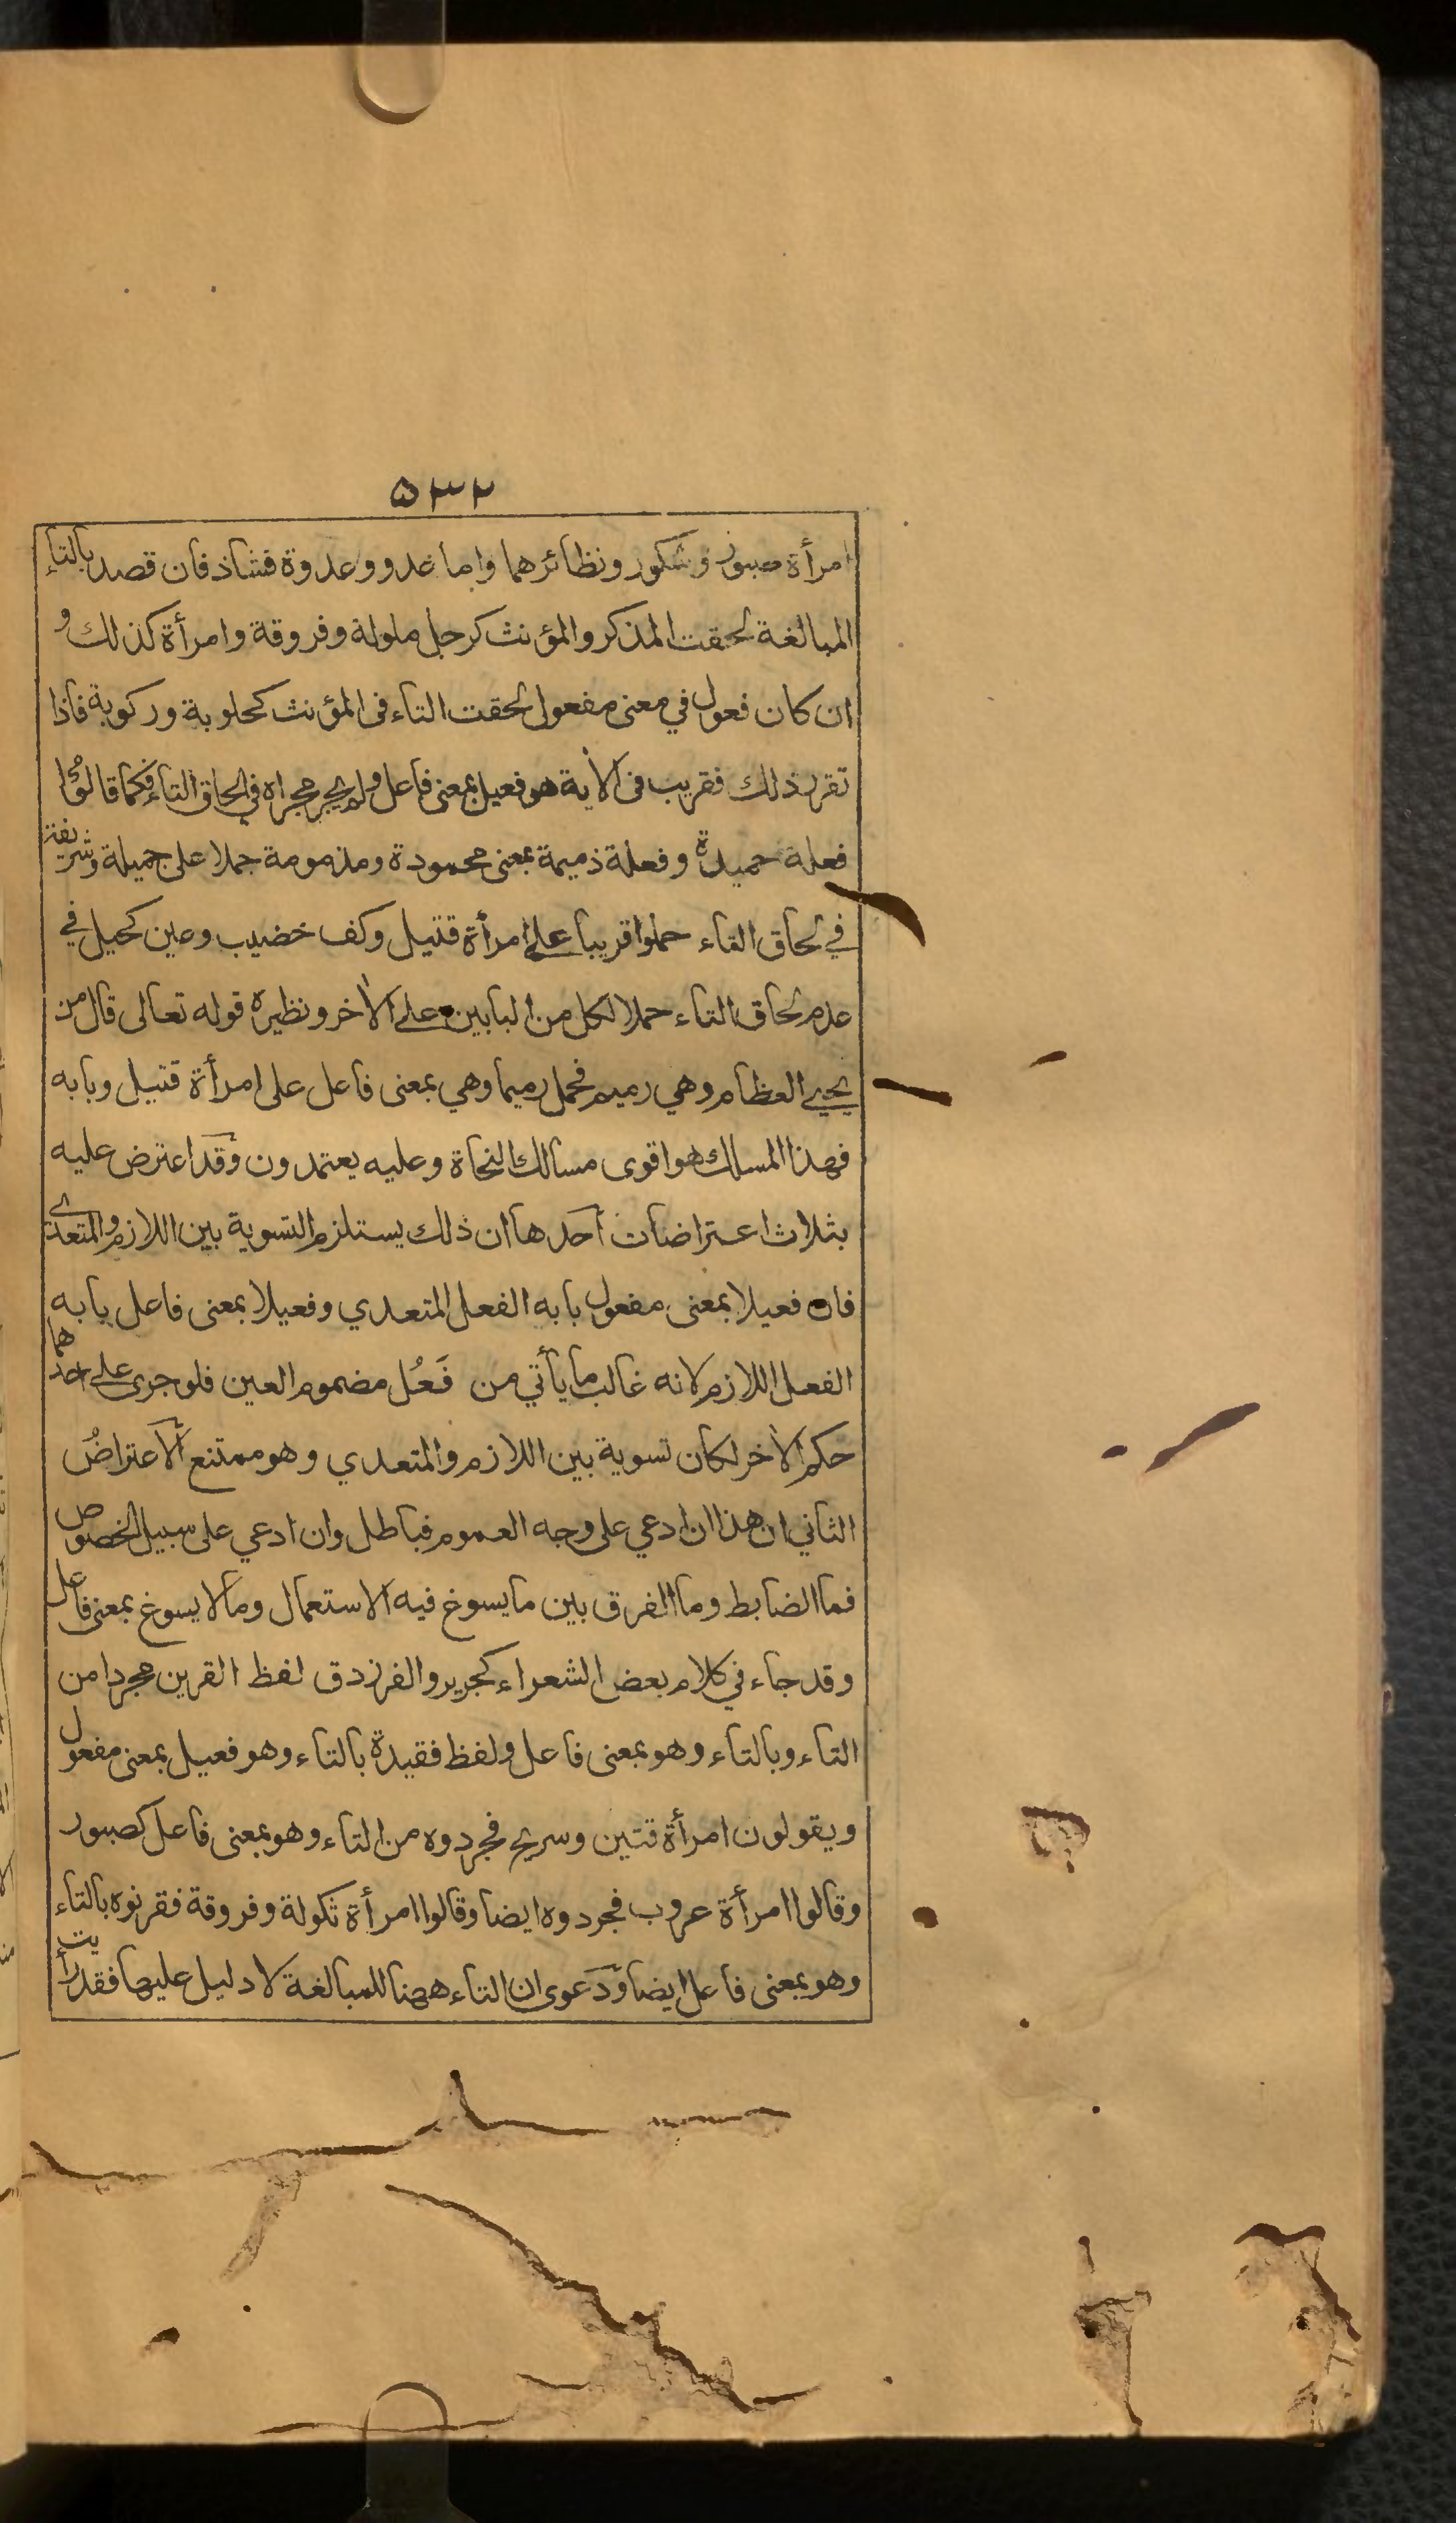 ٥٣٢
امرأة صبور وشكور ونظائرهما واما عدو وعدوة فشاذ فان قصد بالتاء
المبالغة لحقت المذكر والمؤنث كرجل ملولة وفروقة وامرأة كذلك و
ان كان فعول في معنى مفعول لحقت التاء في المؤنث كحلوبة وركوبة فاذا
تقرر ذلك فقريب في الأية هو فعيل بمعنى فاعل ولم يجر مجراه في الحاق التاء فكما قالوا
فعلة حميدة وفعلة ذميمة بمعنى محمودة ومذمومة حملا على جميلة وشريفة
في لحاق التاء حملوا قريبا على امرأة قتيل وكف خضيب وعين كحيل في
عدم لحاق التاء حملا لكل من البابين على الأخر ونظيره قوله تعالى قال من
يحيي العظام وهي رميم فحمل رميما وهي بمعنى فاعل على امرأة قتيل وبابه
فهذا المسلك هو اقوى مسالك النحاة وعليه يعتمدون وقد اعترض عليه
بثلاث اعتراضات أحدها ان ذلك يستلزم التسوية بين اللازم والمتعدي
فان فعيلا بمعنى مفعول بابه الفعل المتعدي وفعيلا بمعنى فاعل بابه
الفعل اللازم لانه غالب ما يأتي من فَعُل مضموم العين فلو جرى على احدهما
حكم الأخر لكان تسوية بين اللازم والمتعدي وهو ممتنع ألاعتراضُ
الثاني ان هذا ان ادعي على وجه العموم فباطل وان ادعي على سبيل الخصوص
فما الضابط وما الفرق بين ما يسوغ فيه الاستعمال وما لا يسوغ بمعنى فاعل
وقد جاء في كلام بعض الشعراء كجرير والفرزدق لفظ القرين مجردا من
التاء وبالتاء وهو بمعنى فاعل ولفظ فقيدة بالتاء وهو فعيل بمعنى مفعول
ويقولون امرأة قتين وسريح فجردوه من التاء وهو بمعنى فاعل كصبور
وقالوا امرأة عروب فجردوه ايضا وقالوا امرأة ثكولة وفروقة فقرنوه بالتاء
وهو بمعنى فاعل ايضا ودعوى ان التاء ههنا للمبالغة لا دليل عليها فقد رأيت